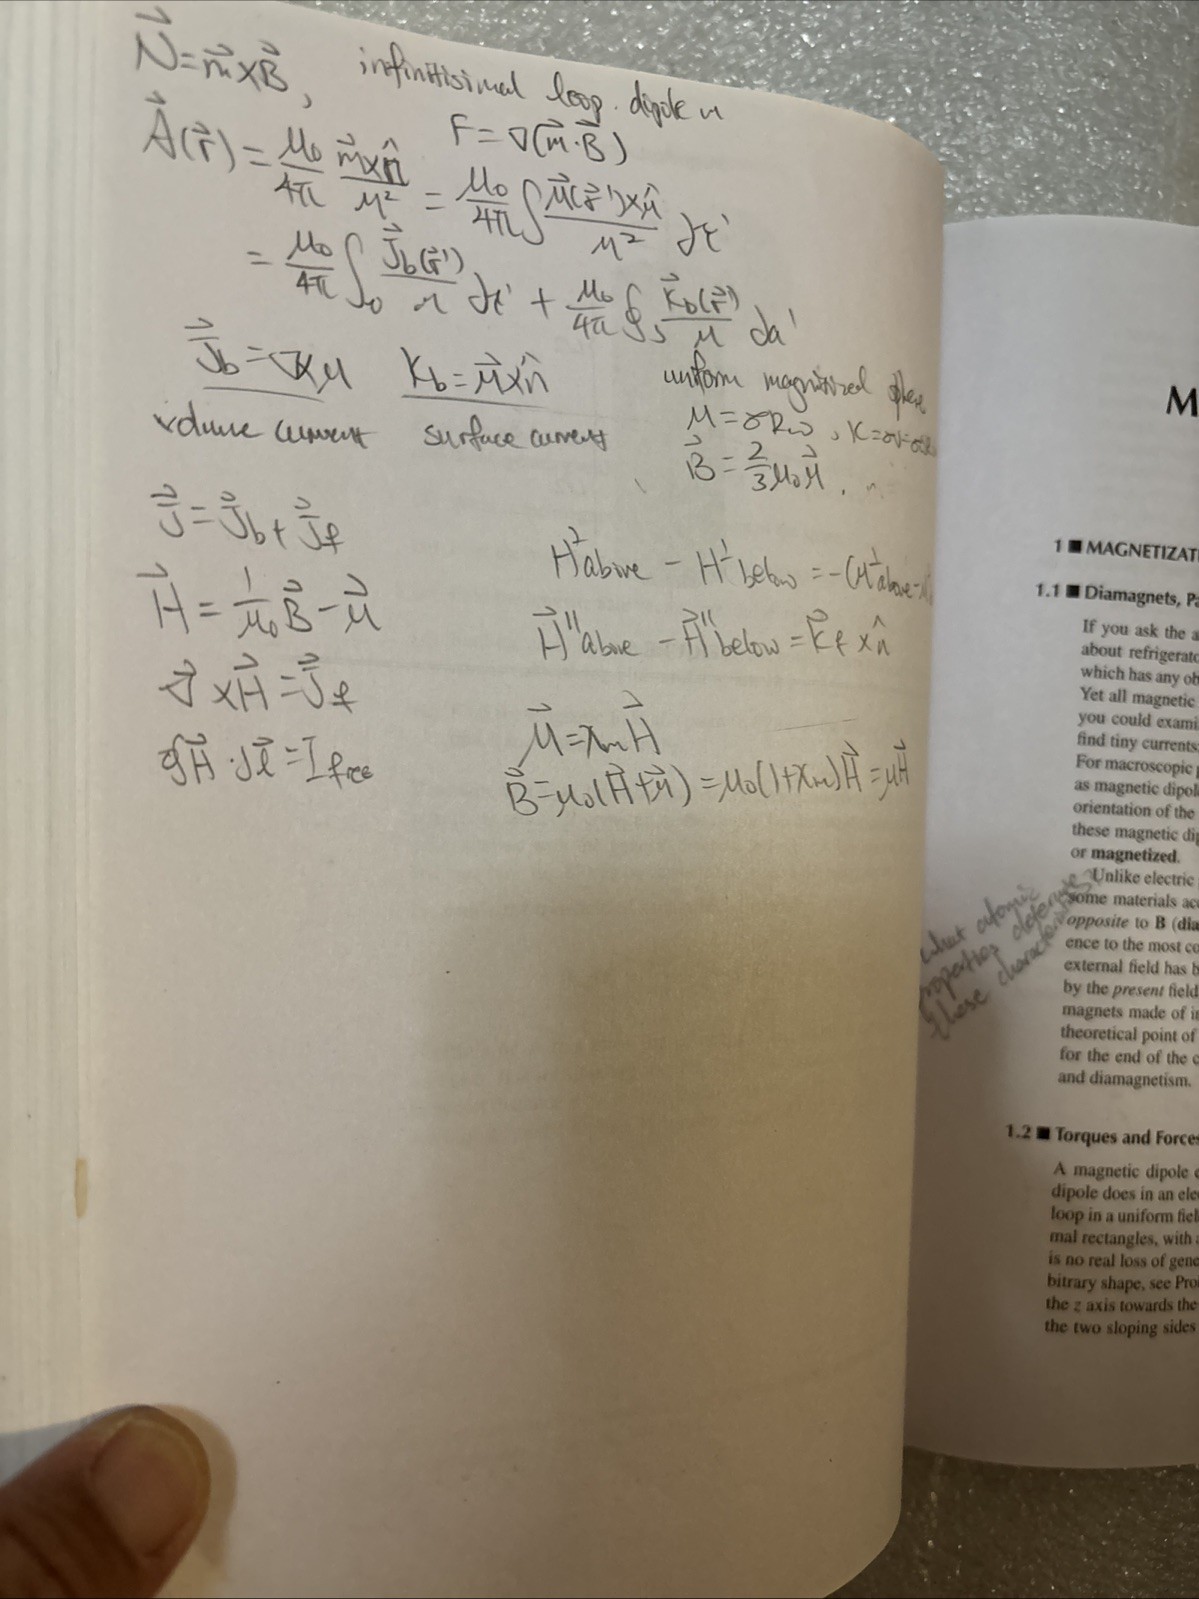 N⃗ = m⃗ × B⃗ ,
infinitisimal loop. dipole m
F = ∇(m⃗ · B⃗)
A⃗(r⃗) = μ₀/4π m⃗×n̂/r² = μ₀/4π ∫ M⃗(r⃗')×r̂/r² dτ'
= μ₀/4π ∫ J⃗b(r⃗')/r dτ' + μ₀/4π ∮s K⃗b(r⃗')/r da'
J⃗b = ∇×M
Kb = M⃗×n̂
volume current
surface current
uniform magnitized sphere
M = σRω , K = σv =
B⃗ = 2/3 μ₀M⃗ .
J⃗ = J⃗b + J⃗f
H⃗ = 1/μ₀ B⃗ − M⃗
∇⃗ × H⃗ = J⃗f
∮H⃗ · dl⃗ = I free
H⊥above − H⊥below = −(M⊥above −
H⃗∥above − H⃗∥below = K⃗f × n̂
M⃗ = χm H⃗
B⃗ = μ₀(H⃗ + M⃗) = μ₀(1+χm)H⃗ = μH⃗
M
1 ■ MAGNETIZAT
1.1 ■ Diamagnets, Pa
If you ask the a
about refrigerato
which has any ob
Yet all magnetic
you could exami
find tiny currents
For macroscopic p
as magnetic dipol
orientation of the
these magnetic dip
or magnetized.
Unlike electric
some materials acq
opposite to B (dia
ence to the most co
external field has b
by the present field
magnets made of ir
theoretical point of
for the end of the c
and diamagnetism.
what atomic
properties determine
these characteristics?
1.2 ■ Torques and Forces
A magnetic dipole e
dipole does in an elec
loop in a uniform fiel
mal rectangles, with a
is no real loss of gene
bitrary shape, see Pro
the z axis towards the
the two sloping sides